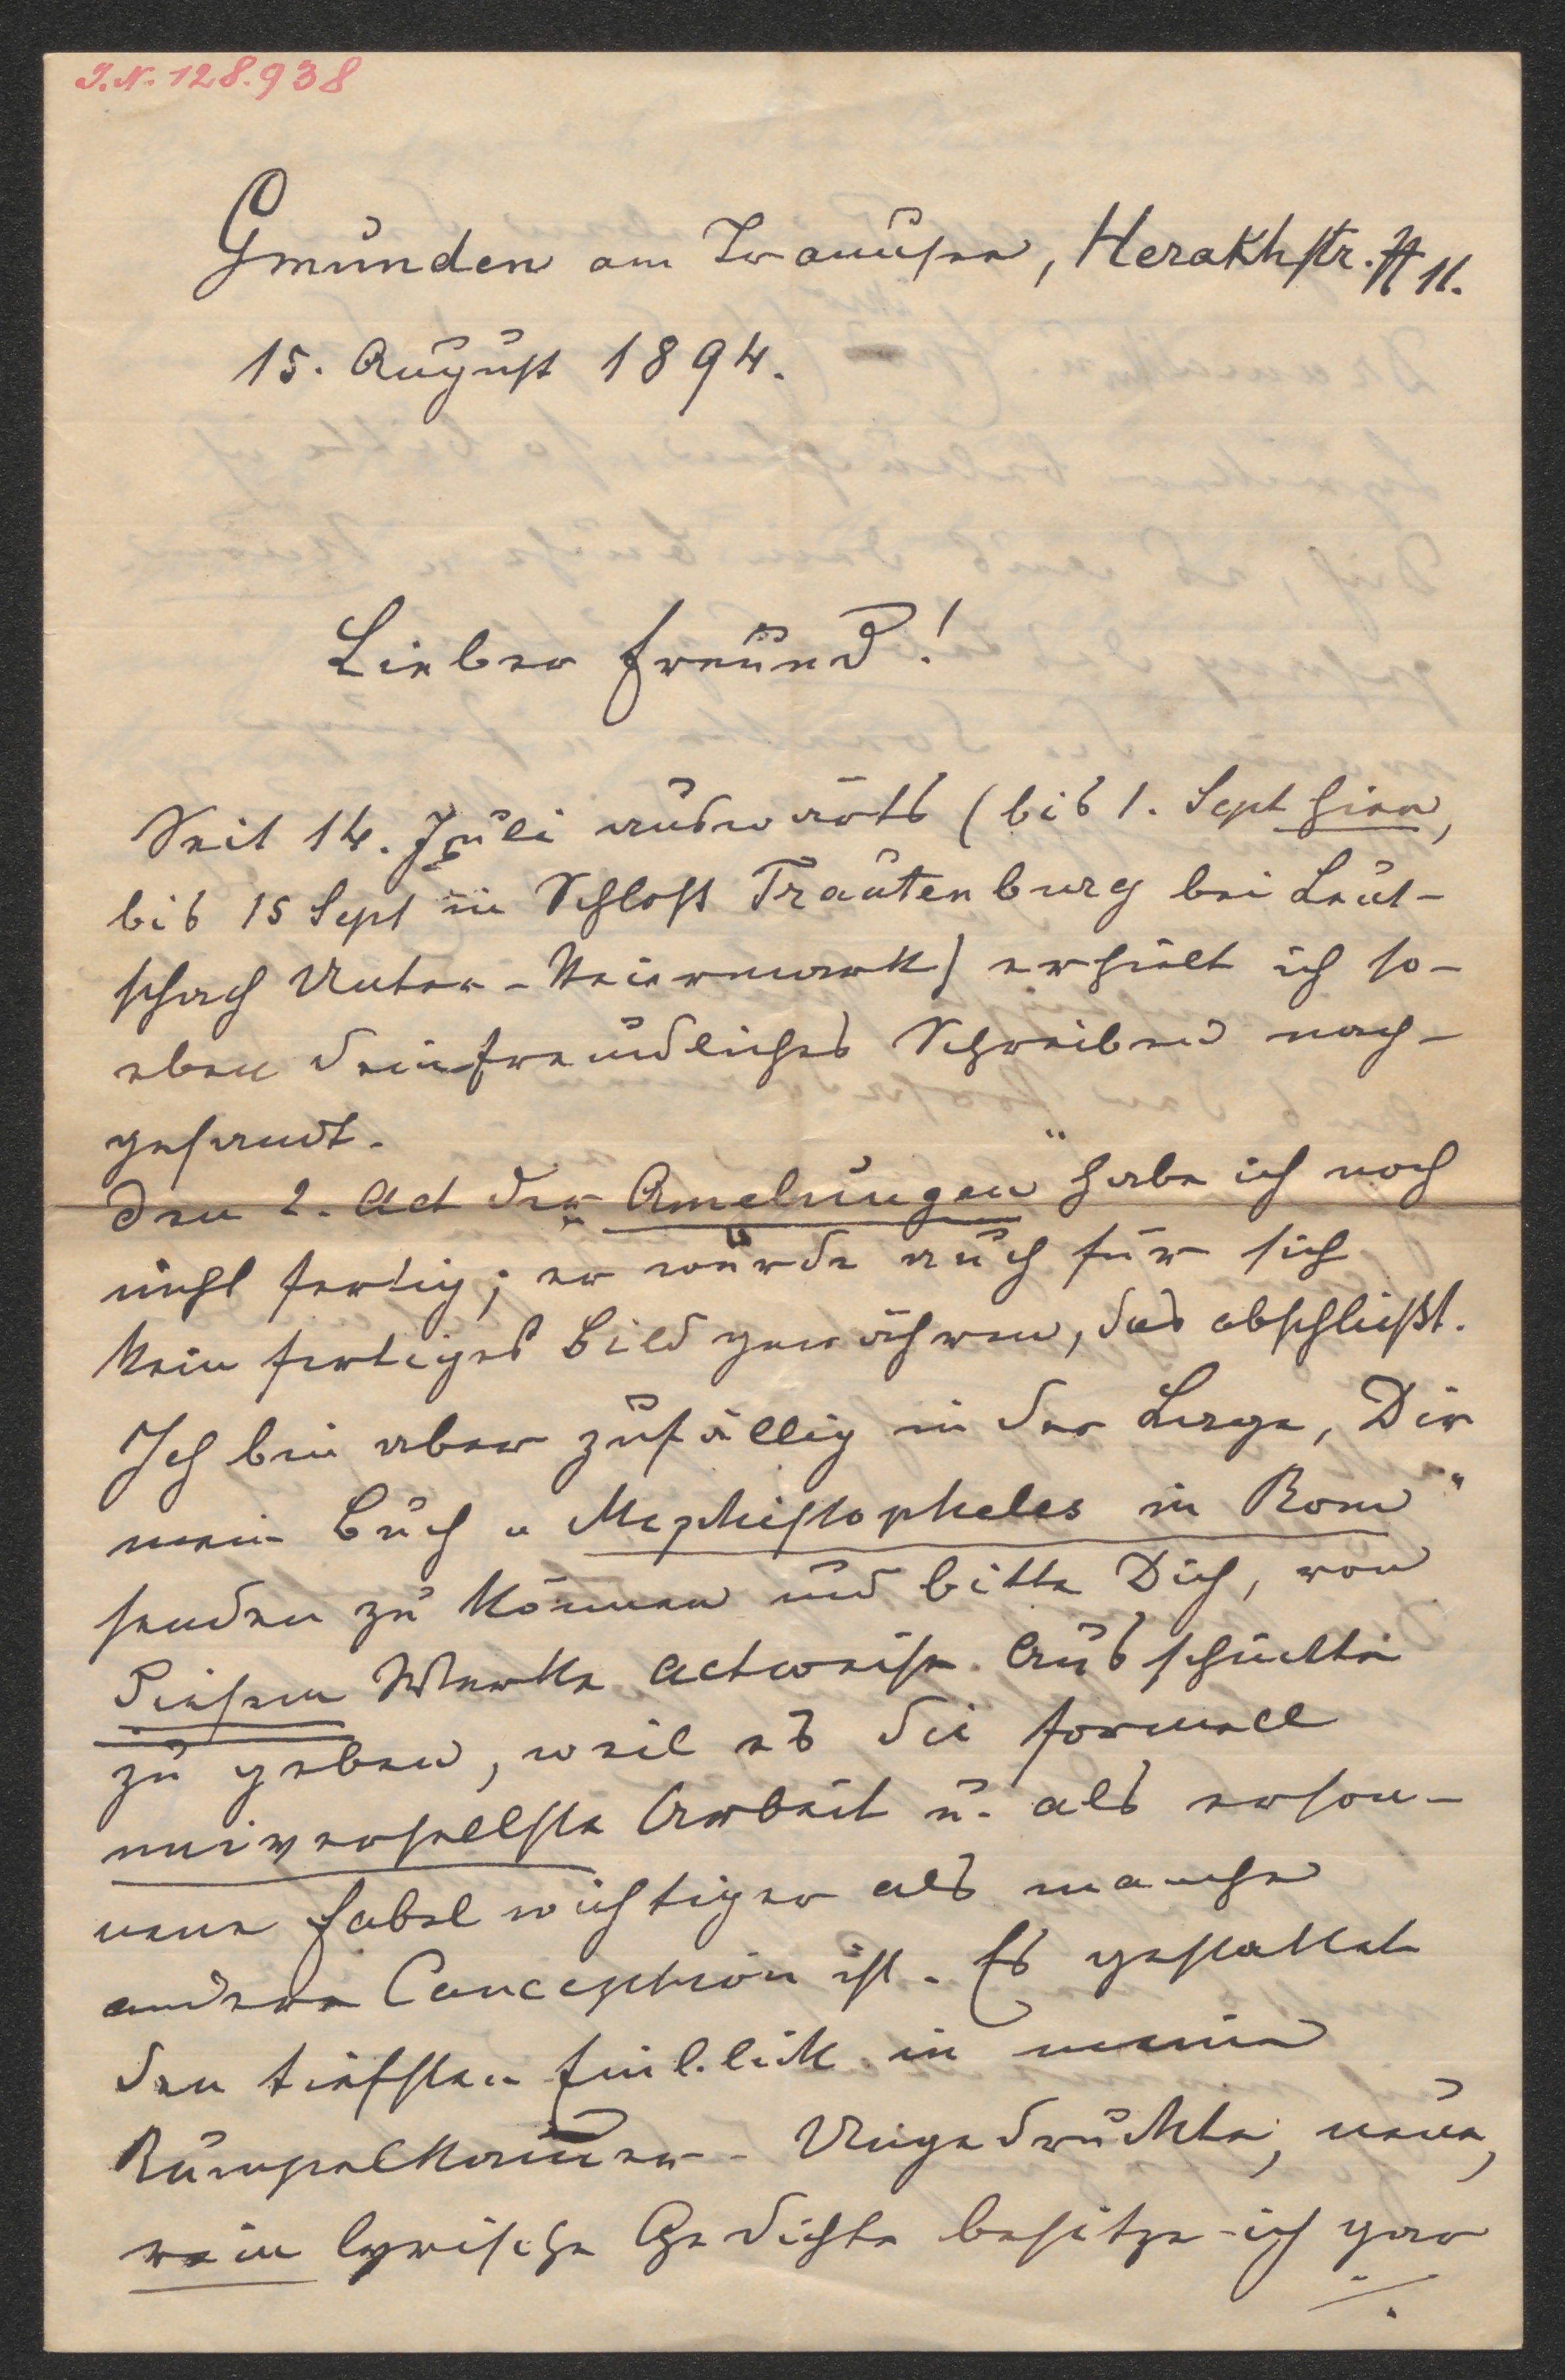 I.N. 128.938
Gmunden am Traunsee, Herakhstr. # 11.
15. August 1894.
Lieber Freund!
Seit 14. Juli auswärts (bis 1. Sept hier,
bis 15 Sept in Schloß Trautenburg bei Leut-
schach Unter-Steiermark) erhielt ich so-
eben dein freundliches Schreiben nach-
gesandt.
Den 2. Act der „Amelungen" habe ich noch
nicht fertig; er würde auch für sich
kein fertiges Bild gewähren, das abschließt.
Ich bin aber zufällig in der Lage, Dir
mein Buch „Mephistopheles in Rom"
senden zu können und bitte Dich, von
diesem Werke actweise Ausschnitte
zu geben, weil es die formell
universellste Arbeit u. als erson-
nene Fabel wichtiger als manche
andere Conception ist. Es gestattet
den tiefsten Einblick in meine
Rumpelkammer. Ungedruckte, neue,
rein lyrische Gedichte besitze ich gar
./.